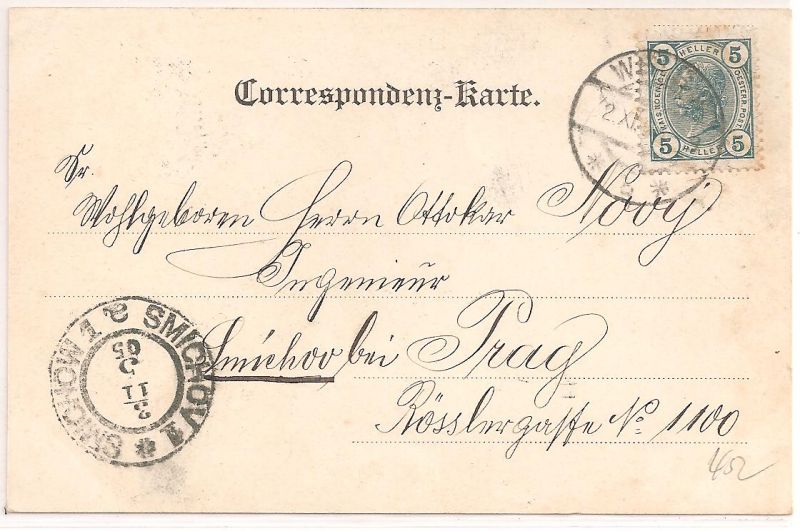 Correspondenz-Karte.
5 HELLER 5
KAIS. KÖNIGL. OESTERR. POST
5 HELLER 5
W
2. XI.
5
Sr.
Wohlgeboren Herrn Ottokar Nový
Ingenieur
Smichov bei Prag
Rösslergasse No 1100
SMICHOV 1 * SMICHOW 1 a
3
11
5
05
452